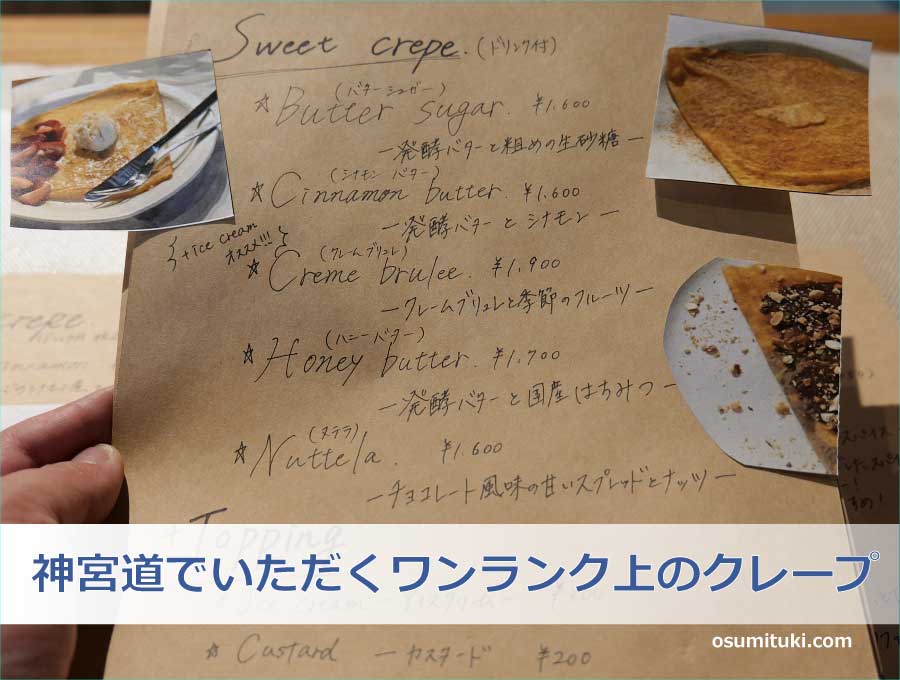 Sweet crepe. (ドリンク付)
(バターシュガー)
☆ Butter sugar. ¥1.600
ー発酵バターと粗めの生砂糖ー
(シナモン バター)
☆ Cinnamon butter. ¥1.600
ー発酵バター と シナモンー
+ice cream
オススメ!!!
(クレームブリュレ)
☆ Creme brulee. ¥1.900
ークレームブリュレと季節のフルーツー
(ハニーバター)
☆ Honey butter. ¥1.700
ー発酵バターと国産はちみつー
(ヌテラ)
☆ Nuttela. ¥1.600
ーチョコレート風味の甘いスプレッドとナッツー
+ Topping
神宮道でいただくワンランク上のクレープ
osumituki.com
☆ Custard ーカスタード ¥200